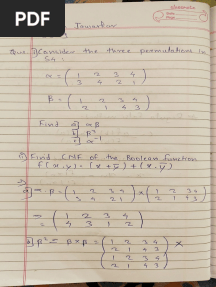 PDF
classmate
Date
Page
Que 1) Consider the three permutations in
S4:
α = ( 1 2 3 4
3 4 2 1 )
β = ( 1 2 3 4
2 1 4 3 )
Find a) αβ
b) β²
c) α⁻¹
ii) Find CNF of the Boolean function
f(x,y) = (x+y̅)+(x̅.y)
a) α.β = ( 1 2 3 4 ) × ( 1 2 3 4 )
( 3 4 2 1 ) ( 2 1 4 3 )
= ( 1 2 3 4
4 3 1 2 )
b) β² = β×β = ( 1 2 3 4
2 1 4 3 ) ×
( 1 2 3 4
2 1 4 3 )